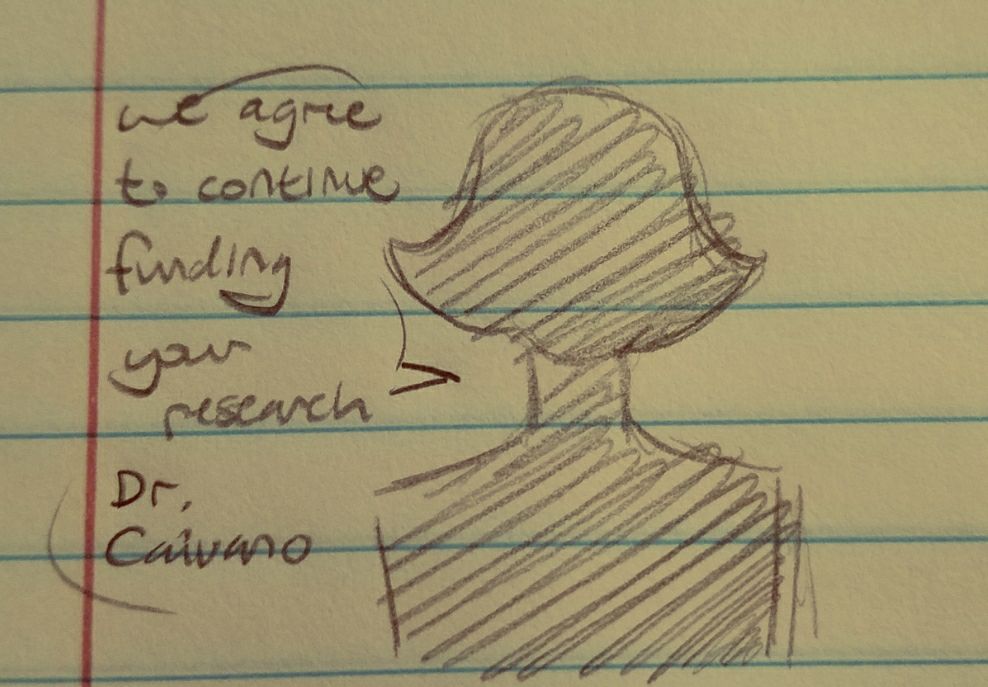 we agree
to continue
funding
your
research
Dr.
Caivano